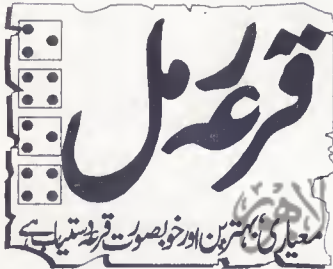 قرعہ رمل
معیاری، بہترین اور خوبصورت قرعہ دستیاب ہے